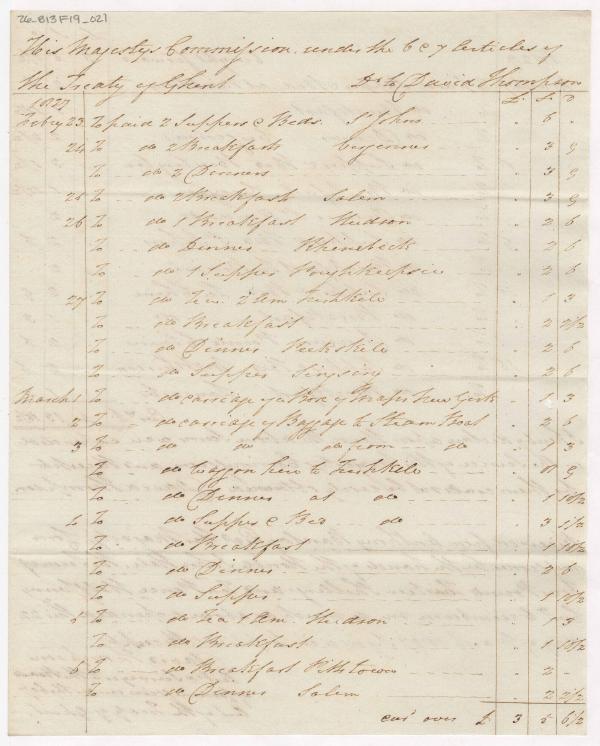 26-813F19_021
His Majestys Commission under the 6 & 7 Articles of
the Treaty of Ghent Dr to David Thompson
1827 £ S D
Feby 23 To paid 2 Suppers & Beds St Johns 6 .
24 To do 2 Breakfast 3 9
To do 2 Dinners 3 9
25 To do 2 Breakfast Salem 3 9
26 To do 1 Breakfast Hudson 2 6
To do Dinner Rhinebeck 2 6
To do 1 Supper Poughkeepsie 2 6
27 To do Tea 2 Am Fishkile 1 3
To do Breakfast 2 7/2
To do Dinner Peekskile 2 6
To do Supper Singsing 2 6
March 1 To do carriage of a Box of Maps New York 1 3
2 To do carriage of Baggage to Steam Boat 2 6
3 To do do do from do 1 3
To do Waggon hire to Fishkile 9
To do Dinner at do 1 10 1/2
4 To do Supper & Bed do 3 1 1/2
To do Breakfast 1 10 1/2
To do Dinner 2 6
To do Supper 1 10 1/2
5 To do Tea 1 Am Hudson 1 3
To do Breakfast 1 10 1/2
6 To do Breakfast Pittstown 2 -
To do Dinner Salem 2 7/2
card over £ 3 5 6 1/2